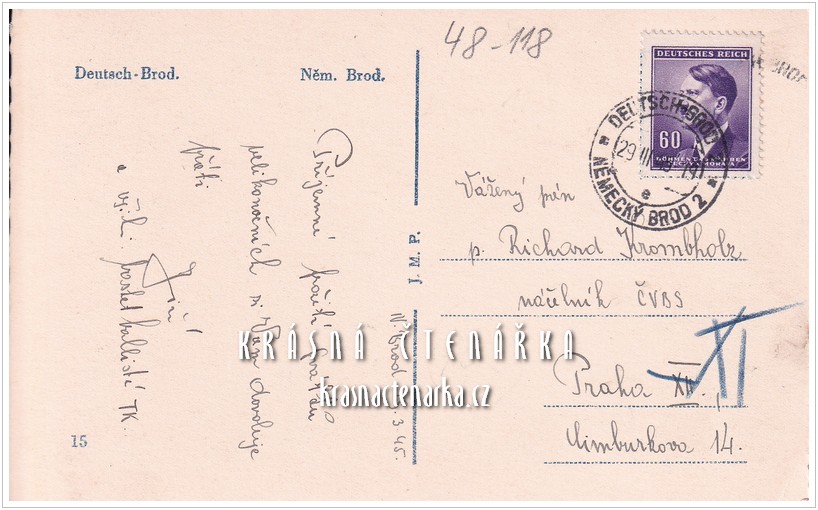 48-118
Deutsch-Brod.
Něm. Brod.
DEUTSCHES REICH
60
BÖHMEN UND MÄHREN
ČECHY A MORAVA
DEUTSCH-BROD 2
29 III
NĚMECKÝ BROD 2
e
N. Brod 3.45.
Příjemné prožití svátků
velikonočních si Vám dovoluje
přáti
Jiří
a ost. basketballisté TK.
J. M. P.
Vážený pán
p. Richard Krombholz
náčelník ČVBS
Praha XII.,
XI
Nimburkova 14.
15
KRÁSNÁ ČTENÁŘKA
krasnactenarka.cz